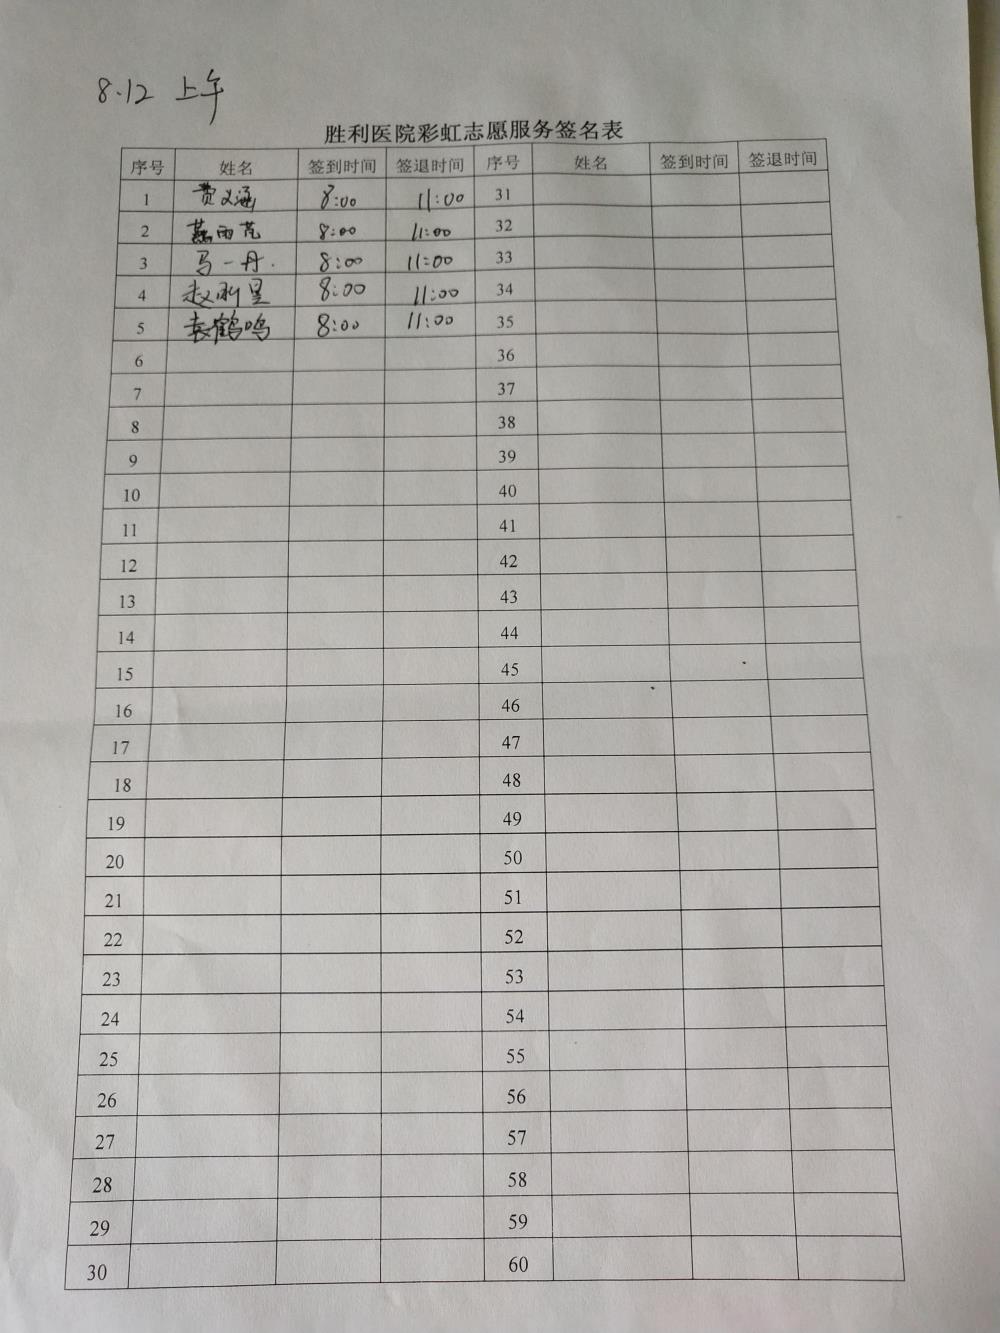 8.12 上午
胜利医院彩虹志愿服务签名表
序号 姓名 签到时间 签退时间 序号 姓名 签到时间 签退时间
1 费义涵 8:00 11:00 31
2 8:00 11:00 32
3 马一丹. 8:00 11:00 33
4 8:00 11:00 34
5 袁鹤鸣 8:00 11:00 35
6 36
7 37
8 38
9 39
10 40
11 41
12 42
13 43
14 44
15 45
16 46
17 47
18 48
19 49
20 50
21 51
22 52
23 53
24 54
25 55
26 56
27 57
28 58
29 59
30 60